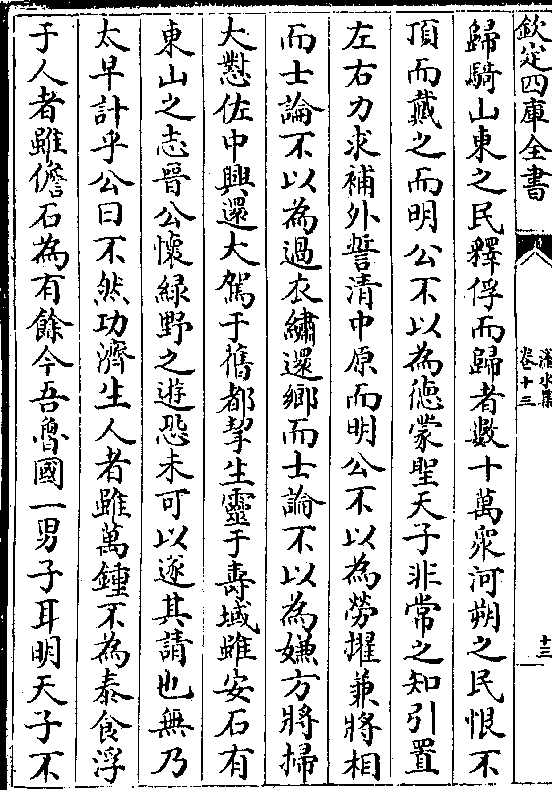 欽定四庫全書
卷十三
十三
歸騎山東之民釋俘而歸者數十萬衆河朔之民恨不
頂而戴之而明公不以為德蒙聖天子非常之知引置
左右力求補外誓清中原而明公不以為勞擢兼將相
而士論不以為過衣繡還鄉而士論不以為嫌方將掃
大憝佐中興還大駕于舊都挈生靈于壽域雖安石有
東山之志晉公懷緑野之遊恐未可以遂其請也無乃
太早計乎公曰不然功濟生人者雖萬鍾不為泰食浮
于人者雖儋石為有餘今吾魯國一男子耳明天子不